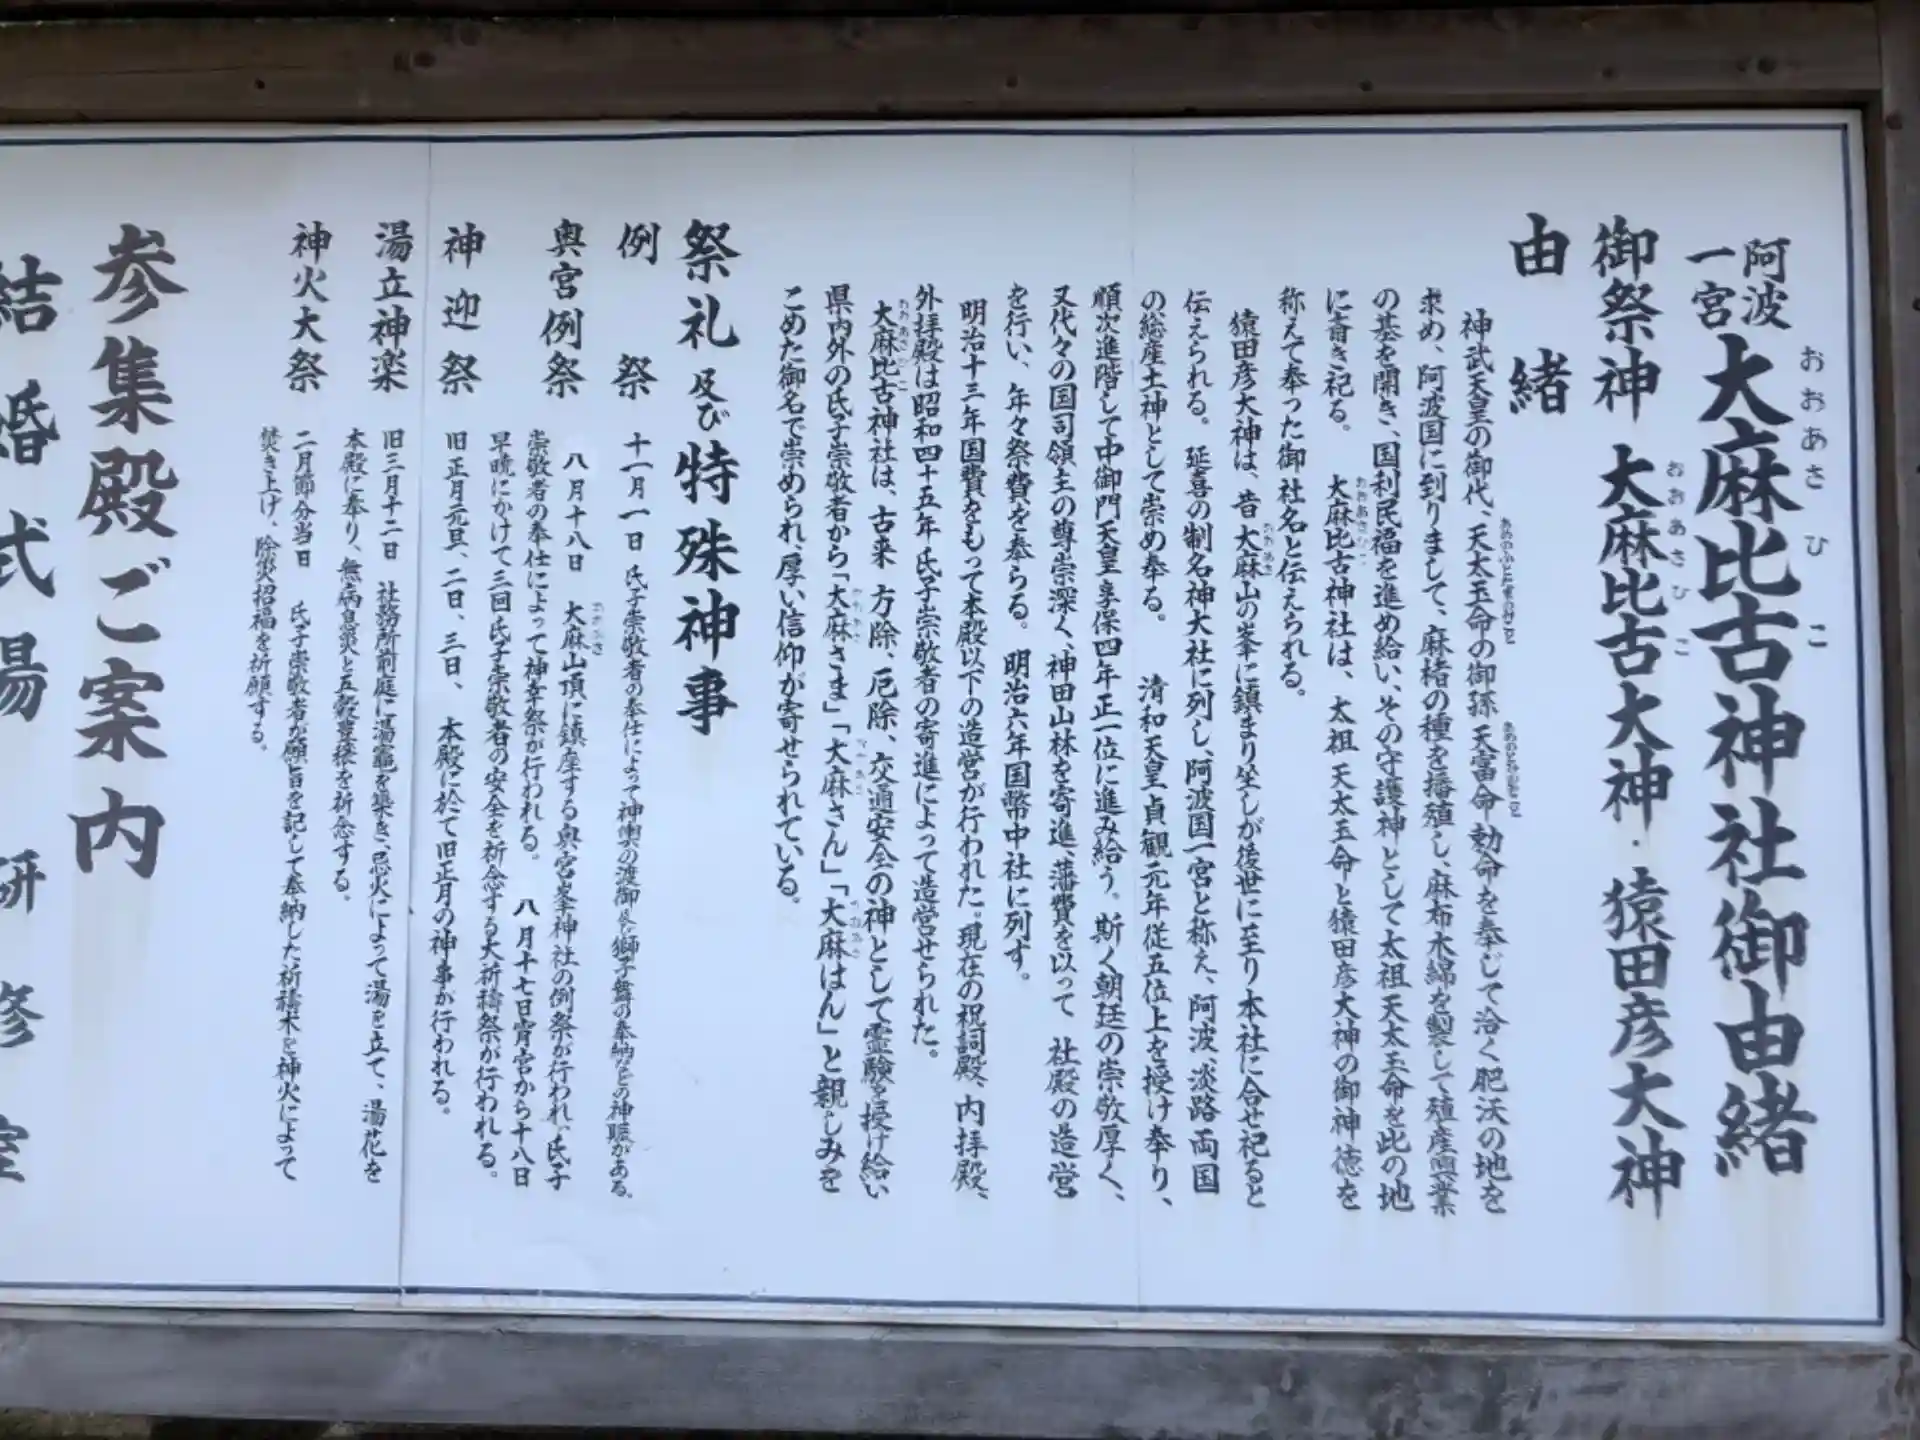 阿波一宮 大麻比古神社御由緒
おおあさひこ
御祭神 大麻比古大神・猿田彦大神
おおあさひこ
由緒
神武天皇の御代、天太玉命の御孫 天富命 勅命を奉じて洽く肥沃の地を
求め、阿波国に到りまして、麻楮の種を播殖し、麻布木綿を製して殖産興業
の基を開き、国利民福を進め給い、その守護神として太祖天太玉命を此の地
に斎き祀る。 大麻比古神社は、太祖 天太玉命と猿田彦大神の御神徳を
称えて奉った御社名と伝えられる。
猿田彦大神は、昔 大麻山の峯に鎮まり坐しが後世に至り本社に合せ祀ると
伝えられる。 延喜の制名神大社に列し、阿波国一宮と称え、阿波、淡路両国
の総産土神として崇め奉る。 清和天皇貞観元年従五位上を授け奉り、
順次進階して中御門天皇享保四年正一位に進み給う。斯く朝廷の崇敬厚く、
又代々の国司領主の尊崇深く、神田山林を寄進、藩費を以って 社殿の造営
を行い、年々祭費を奉らる。 明治六年国幣中社に列す。
明治十三年国費をもって本殿以下の造営が行われた。現在の祝詞殿、内拝殿、
外拝殿は昭和四十五年 氏子崇敬者の寄進によって造営せられた。
大麻比古神社は、古来 方除、厄除、交通安全の神として霊験を授け給い
県内外の氏子崇敬者から「大麻さま」「大麻さん」「大麻はん」と親しみを
こめた御名で崇められ、厚い信仰が寄せられている。
祭礼及び特殊神事
例祭 十一月一日 氏子崇敬者の奉仕によって神輿の渡御及び獅子舞の奉納などの神賑がある。
奥宮例祭 八月十八日 大麻山頂に鎮座する奥宮峯神社の例祭が行われ、氏子
崇敬者の奉仕によって神幸祭が行われる。 八月十七日宵宮から十八日
早暁にかけて三回氏子崇敬者の安全を祈念する大祈祷祭が行われる。
神迎祭 旧正月元旦、二日、三日、 本殿に於て旧正月の神事が行われる。
湯立神楽 旧三月十二日 社務所前庭に湯竈を築き、忌火によって湯を立て、湯花を
本殿に奉り、無病息災と五穀豊穣を祈念する。
神火大祭 二月節分当日 氏子崇敬者が願旨を記して奉納した祈祷木を神火によって
焚き上げ、除災招福を祈願する。
参集殿ご案内
結婚式場 研修室